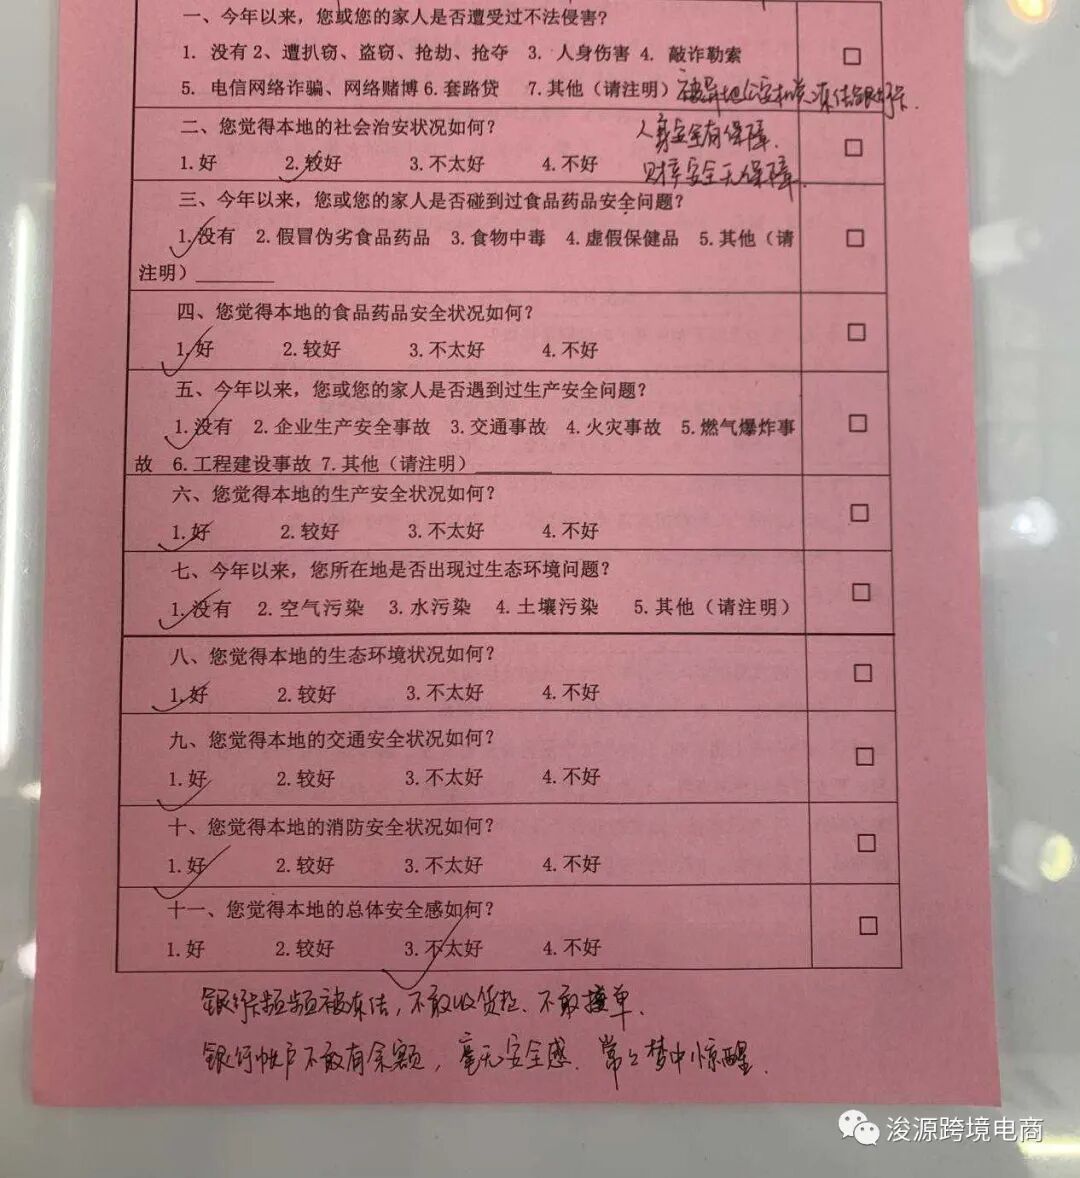 一、今年以来，您或您的家人是否遭受过不法侵害？
1. 没有 2、遭扒窃、盗窃、抢劫、抢夺 3. 人身伤害 4. 敲诈勒索
5. 电信网络诈骗、网络赌博 6.套路贷 7.其他（请注明）被异地公安机关冻结银行卡.
二、您觉得本地的社会治安状况如何？ 人身安全有保障.
1.好 2.较好 3.不太好 4.不好 财产安全无保障.
三、今年以来，您或您的家人是否碰到过食品药品安全问题？
1.没有 2.假冒伪劣食品药品 3.食物中毒 4.虚假保健品 5.其他（请
注明）________
四、您觉得本地的食品药品安全状况如何？
1.好 2.较好 3.不太好 4.不好
五、今年以来，您或您的家人是否遇到过生产安全问题？
1.没有 2.企业生产安全事故 3.交通事故 4.火灾事故 5.燃气爆炸事
故 6.工程建设事故 7.其他（请注明）________
六、您觉得本地的生产安全状况如何？
1.好 2.较好 3.不太好 4.不好
七、今年以来，您所在地是否出现过生态环境问题？
1.没有 2.空气污染 3.水污染 4.土壤污染 5.其他（请注明）
八、您觉得本地的生态环境状况如何？
1.好 2.较好 3.不太好 4.不好
九、您觉得本地的交通安全状况如何？
1.好 2.较好 3.不太好 4.不好
十、您觉得本地的消防安全状况如何？
1.好 2.较好 3.不太好 4.不好
十一、您觉得本地的总体安全感如何？
1.好 2.较好 3.不太好 4.不好
银行卡频频被冻结，不敢收货款、不敢接单.
银行帐户不敢有余额，毫无安全感.常々梦中惊醒.
浚源跨境电商